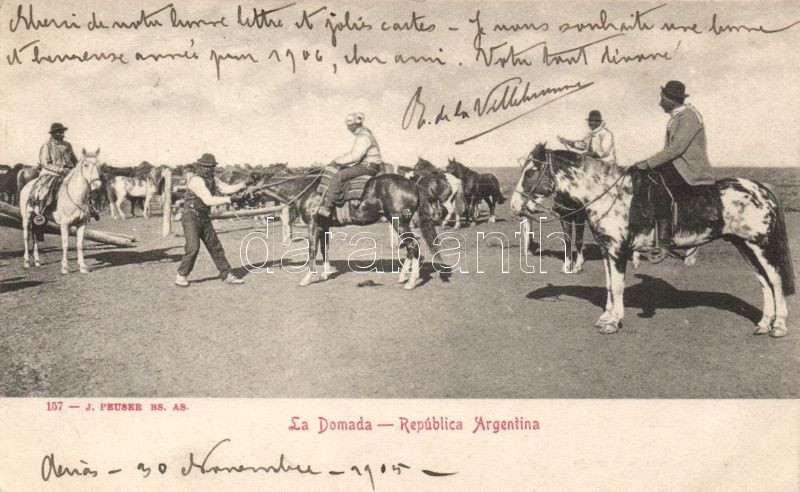 Merci de votre bonne lettre et jolies cartes — Je vous souhaite une bonne
et heureuse année pour 1906, cher ami. Votre tout dévoué
R. de la Villebrunne
darabanth
157 — J. PEUSER BS. AS.
La Domada — República Argentina
30 Novembre — 1905 —